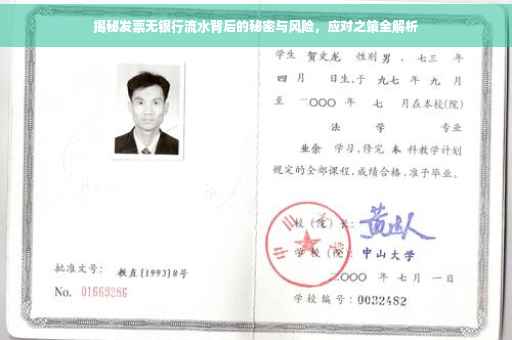 揭秘发票无银行流水背后的秘密与风险，应对之策全解析
学生 贺文龙 性别 男，七三 年
四 月 日生，于 九七 年 九 月
至 二〇〇〇 年 七 月在本校(院)
法 学 专业
业余 学习，修完 本 科教学计划
规定的全部课程，成绩合格，准予毕业。
校(院)长：
学校(院)：中山大学
二〇〇〇 年 七 月 一 日
学校编号：0032482
批准文号：教直[1993]8号
No. 01669286